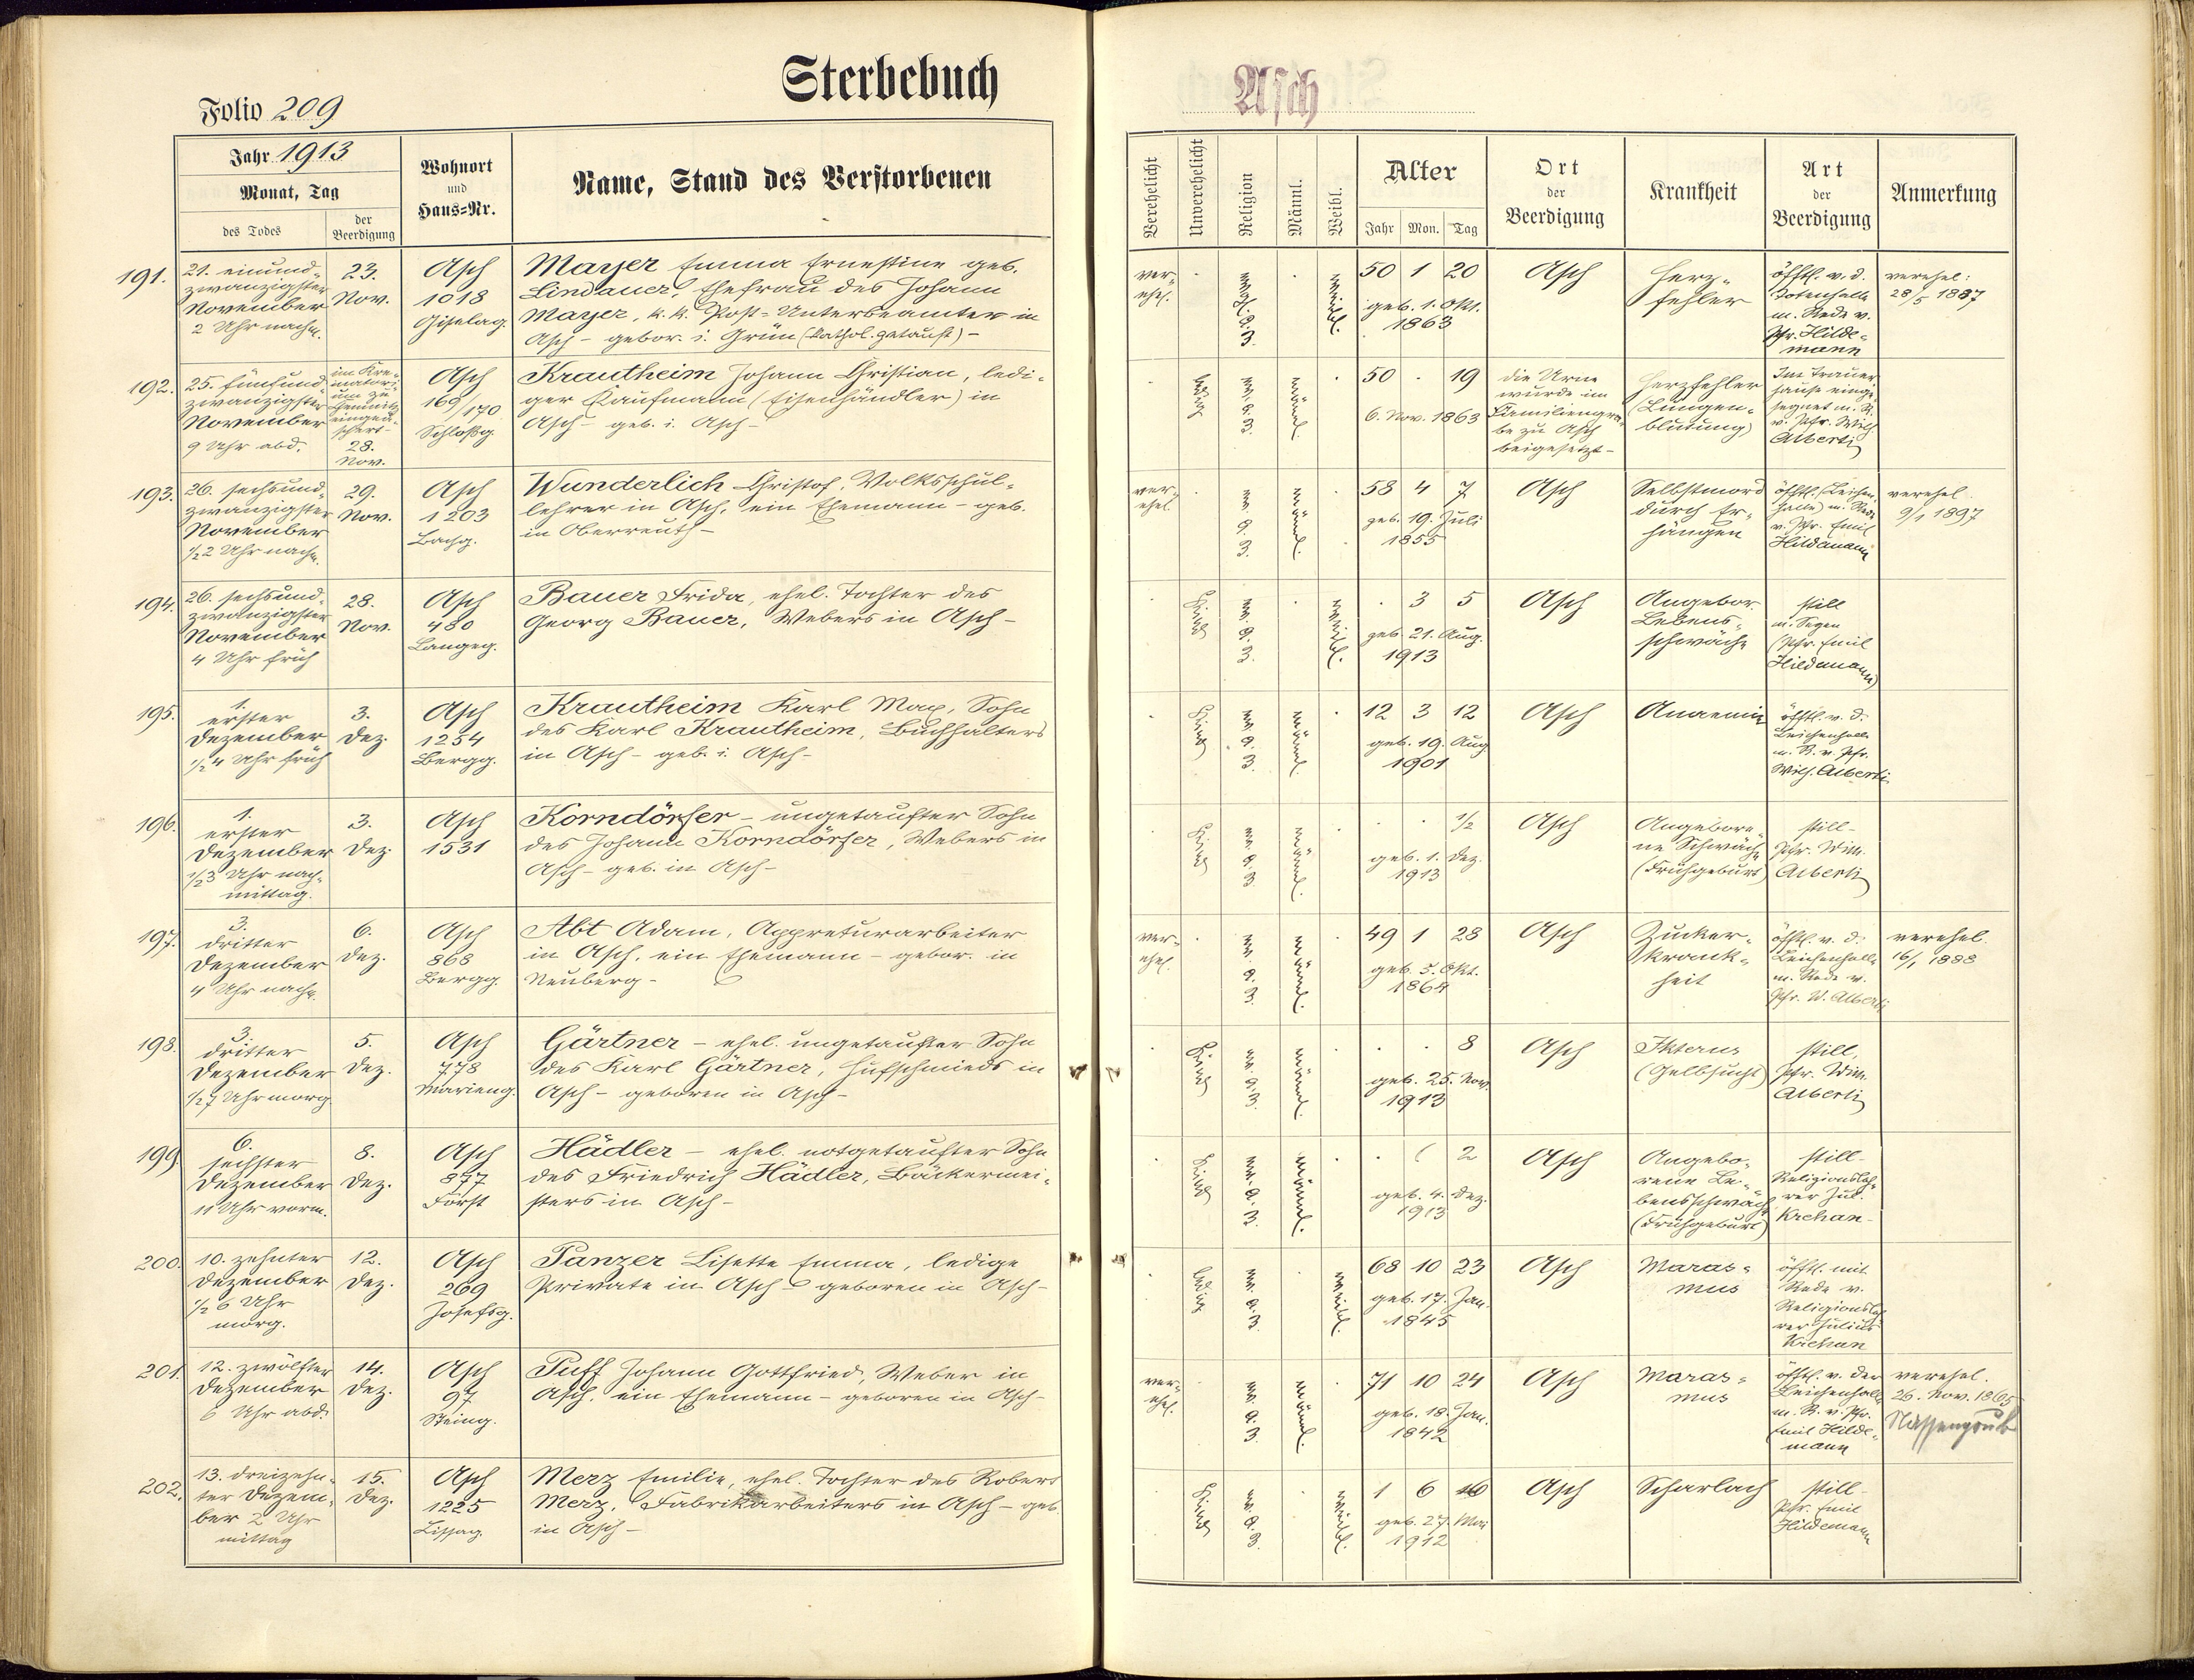 Sterbebuch
Asch
Folio 209
Jahr 1913
Monat, Tag
des Todes
der Beerdigung
Wohnort
und
Haus=Nr.
Name, Stand des Verstorbenen
Verehelicht
Unverehelicht
Religion
Männl.
Weibl.
Alter
Jahr Mon. Tag
Ort
der
Beerdigung
Krankheit
Art
der
Beerdigung
Anmerkung
191.
21. einund-
zwanzigster
November
2 Uhr nachm.
23.
Nov.
Asch
1018
Giselag.
Mayer Emma Ernestine geb.
Lindauer, Ehefrau des Johann
Mayer, k. k. Post-Unterbeamten in
Asch - gebor. i. Grün (kathol. getauft) -
ver-
ehel.
weibl.
50 1 20
geb. 1. Okt.
1863
Asch
Herz-
fehler
öfftl. v. d.
Totenhalle
m. Rede v.
Pfr. Hilde-
mann
verehel:
28/5 1887
192.
25. fünfund-
zwanzigster
November
9 Uhr abd.
im Kre-
matori-
um zu
Chemnitz
eingeä-
schert -
28.
Nov.
Asch
169/170
Schloßg.
Krautheim Johann Christian, ledi-
ger Kaufmann (Eisenhändler) in
Asch - geb. i. Asch -
ledig
ev. A. B.
männl.
50 . 19
6. Nov. 1863
die Urne
wurde im
Familiengra-
be zu Asch
beigesetzt -
Herzfehler
(Lungen-
blutung)
Im Trauer-
hause einge-
segnet m. R.
v. Pfr. Wilh.
Alberti
193.
26. sechsund-
zwanzigster
November
1/2 2 Uhr nachm.
29.
Nov.
Asch
1203
Bachg.
Wunderlich Christof, Volksschul-
lehrer in Asch, ein Ehemann - geb.
in Oberreuth -
ver-
ehel.
männl.
58 4 7
geb. 19. Juli
1855
Asch
Selbstmord
durch Er-
hängen
öfftl. (Leichen-
halle) m. Rede
v. Pfr. Emil
Hildemann
verehel.
9/1 1897
194.
26. sechsund-
zwanzigster
November
4 Uhr früh
28.
Nov.
Asch
480
Langeg.
Bauer Frida, ehel. Tochter des
Georg Bauer, Webers in Asch -
Kind
weibl.
. 3 5
geb. 21. Aug.
1913
Asch
Angebor.
Lebens-
schwäche
still
m. Segen
(Pfr. Emil
Hildemann)
195.
1.
erster
Dezember
1/2 4 Uhr früh
3.
Dez.
Asch
1254
Bergg.
Krautheim Karl Max, Sohn
des Karl Krautheim, Buchhalters
in Asch - geb. i. Asch -
Kind
männl.
12 3 12
geb. 19. Aug.
1901
Asch
Anaemie
öfftl. v. d.
Leichenhalle
m. R. v. Pfr.
Wilh. Alberti
196.
1.
erster
Dezember
1/2 3 Uhr nach-
mittag.
3.
Dez.
Asch
1531
Korndörfer - ungetaufter Sohn
des Johann Korndörfer, Webers in
Asch - geb. in Asch -
Kind
männl.
1/2
geb. 1. Dez.
1913
Asch
Angebore-
ne Schwäche
(Frühgeburt)
still -
Pfr. Wilh.
Alberti
197.
3.
dritter
Dezember
4 Uhr nachm.
6.
Dez.
Asch
868
Bergg.
Abt Adam, Appreturarbeiter
in Asch, ein Ehemann - gebor. in
Neuberg -
ver-
ehel.
männl.
49 1 28
geb. 5. Okt.
1864
Asch
Zucker-
krank-
heit
öfftl. v. d.
Leichenhalle
m. Rede v.
Pfr. W. Alberti
verehel.
16/1 1888
198.
3.
dritter
Dezember
1/2 7 Uhr morg.
5.
Dez.
Asch
778
Marieng.
Gärtner - ehel. ungetaufter Sohn
des Karl Gärtner, Hufschmieds in
Asch - geboren in Asch -
Kind
männl.
8
geb. 25. Nov.
1913
Asch
Ikterus
(Gelbsucht)
still,
Pfr. Wilh.
Alberti
199.
6.
sechster
Dezember
11 Uhr vorm.
8.
Dez.
Asch
877
Forst
Hädler - ehel. notgetaufter Sohn
des Friedrich Hädler, Bäckermei-
sters in Asch -
Kind
männl.
2
geb. 4. Dez.
1913
Asch
Angebo-
rene Le-
bensschwäche
(Frühgeburt)
still -
Religionsleh-
rer Jul.
Krehan -
200.
10. zehnter
Dezember
1/2 6 Uhr
morg.
12.
Dez.
Asch
269
Josefsg.
Panzer Lisette Emma, ledige
Private in Asch - geboren in Asch -
ledig
weibl.
68 10 23
geb. 17. Jan.
1845
Asch
Maras-
mus
öfftl. mit
Rede v.
Religionsleh-
rer Julius
Krehan
201.
12. zwölfter
Dezember
6 Uhr abd.
14.
Dez.
Asch
97
Steing.
Puff Johann Gottfried, Weber in
Asch, ein Ehemann - geboren in Asch -
ver-
ehel.
männl.
71 10 24
geb. 18. Jan.
1842
Asch
Maras-
mus
öfftl. v. der
Leichenhalle
m. R. v. Pfr.
Emil Hilde-
mann
verehel.
26. Nov. 1865
Nassengrub
202.
13. dreizehn-
ter Dezem-
ber 2 Uhr
mittag
15.
Dez.
Asch
1225
Merz Emilie, ehel. Tochter des Robert
Merz, Fabrikarbeiters in Asch - geb.
in Asch -
Kind
weibl.
1 6 16
geb. 27. Mai
1912
Asch
Scharlach
still -
Pfr. Emil
Hildemann